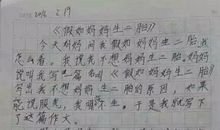 2016 2月19
《假如妈妈生二胎》
今天妈妈问我假如妈妈生二胎我
怎么看。我说我不想妈妈生二胎。妈妈
说叫我写一篇名叫《假如妈妈生二胎》
写出我不想妈妈生二胎的原因,如果
能说服她,我明年生。于是我就写下
了这篇作文。